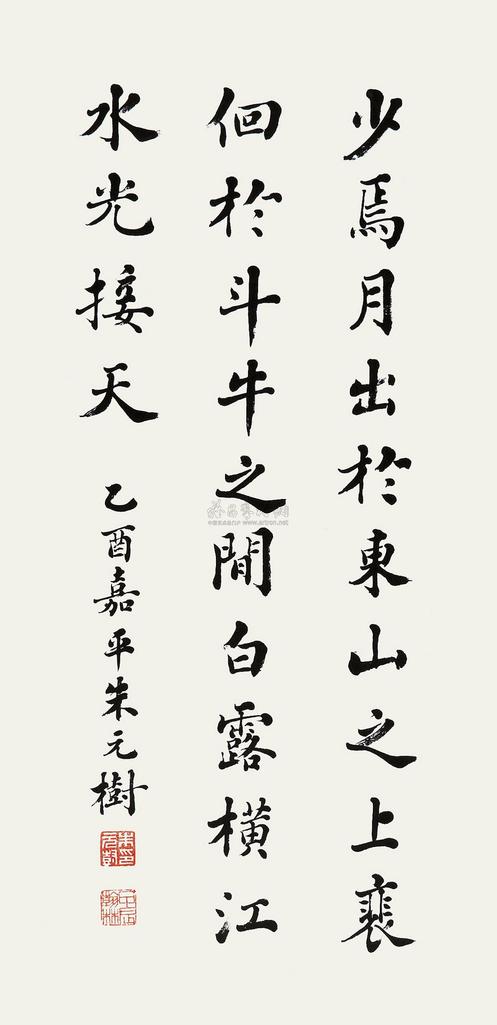 少焉月出於東山之上裵
佪於斗牛之閒白露橫江
水光接天
乙酉嘉平朱元樹
www.artron.net